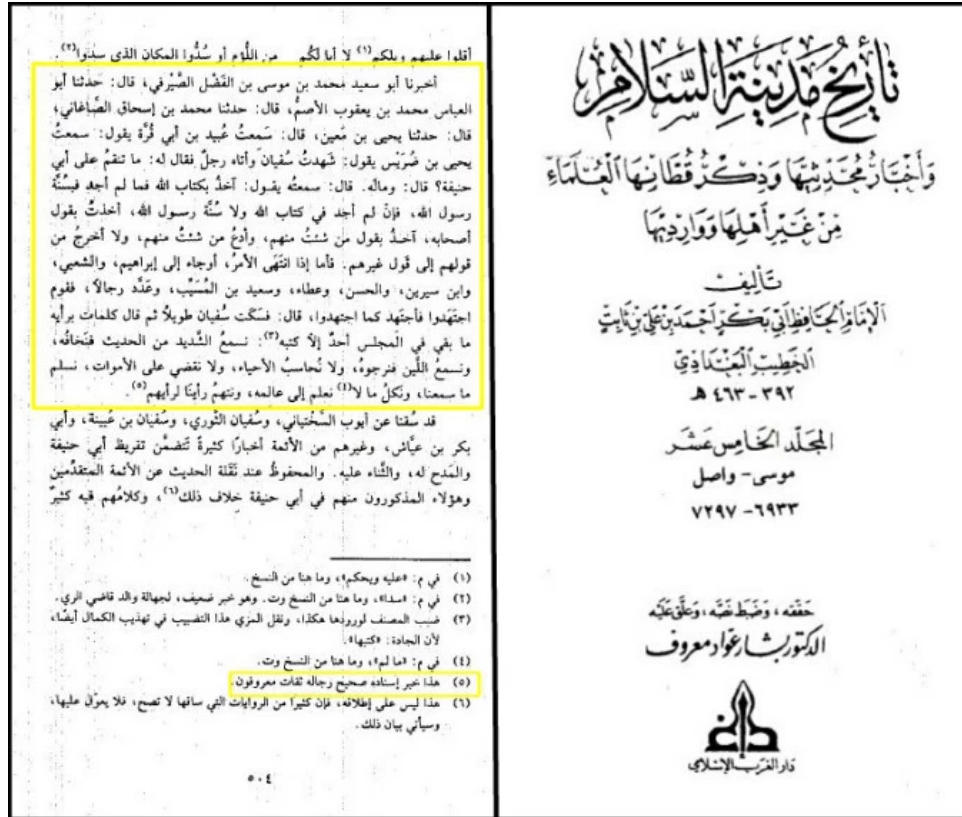 أقلوا عليهم ويلكم(١) لا أبا لكم من اللُّؤم أو سُدُّوا المكان الذي سدوا(٢).
أخبرنا أبو سعيد محمد بن موسى بن الفَضْل الصَّيْرفي، قال: حدثنا أبو
العباس محمد بن يعقوب الأصمُّ، قال: حدثنا محمد بن إسحاق الصَّاغاني،
قال: حدثنا يحيى بن مَعين، قال: سَمعتُ عُبيد بن أبي قُرَّة يقول: سمعتُ
يحيى بن ضُرَيْس يقول: شَهدتُ سُفيان وأتاه رجلٌ فقال له: ما تنقمُ على أبي
حنيفة؟ قال: وماله. قال: سمعتُه يقول: آخذُ بكتاب الله فما لم أجد فبسُنَّة
رسول الله، فإنْ لم أجد في كتاب الله ولا سُنَّة رسول الله، أخذتُ بقول
أصحابه، آخذُ بقول من شئتُ منهم، وأدعُ من شئتُ منهم، ولا أخرجُ من
قولهم إلى قول غيرهم. فأما إذا انتَهَى الأمرُ، أوجاء إلى إبراهيم، والشعبي،
وابن سيرين، والحسن، وعطاء، وسعيد بن المُسَيِّب، وعَدَّد رجالاً، فقوم
اجتَهَدوا فأجتَهد كما اجتهدوا، قال: فسَكَت سُفيان طويلاً ثم قال كلمات برأيه
ما بقي في المجلس أحدٌ إلاَّ كتبه(٣): نسمعُ الشَّديد من الحديث فنَخافُه،
ونسمعُ اللَّين فنرجوهُ، ولا نُحاسبُ الأحياء، ولا نقضي على الأموات، نسلم
ما سمعنا، ونَكلُ ما لا(٤) نعلم إلى عالمه، ونتهمُ رأينَا لرأيهم(٥).
قد سُقنا عن أيوب السَّخْتياني، وسُفيان الثَّوري، وسُفيان بن عُيينة، وأبي
بكر بن عيَّاش، وغيرهم من الأئمة أخبارًا كثيرةً تَتضمَّن تقريظ أبي حنيفة
والمَدح له، والثَّناء عليه. والمحفوظُ عند نَقَلة الحديث عن الأئمة المتقدِّمين
وهؤلاء المذكورون منهم في أبي حنيفة خلاف ذلك(٦)، وكلامُهم فيه كثيرٌ
(١) في م: «عليه ويحكم»، وما هنا من النسخ.
(٢) في م: «سدا»، وما هنا من النسخ وت. وهو خبر ضعيف، لجهالة والد قاضي الري.
(٣) ضبب المصنف لورودها هكذا، ونقل المزي هذا التضبيب في تهذيب الكمال أيضًا،
لأن الجادة: «كتبها».
(٤) في م: «ما لم»، وما هنا من النسخ وت.
(٥) هذا خبر إسناده صحيح رجاله ثقات معروفون.
(٦) هذا ليس على إطلاقه، فإن كثيرًا من الروايات التي ساقها لا تصح، فلا يعول عليها،
وسيأتي بيان ذلك.
٥٠٤
تَأْرِيخُ مَدِينَةِ السَّلَامِ
وَأَخْبَارُ مُحَدِّثِيهَا وَذِكْرُ قُطَّانِهَا الْعُلَمَاءِ
مِنْ غَيْرِ أَهْلِهَا وَوَارِدِيهَا
تَأليفُ
الإِمَامِ الْحَافِظِ أَبِي بَكْرٍ أَحْمَدَ بْنِ عَلِيِّ بْنِ ثَابِتٍ
الْخَطِيبِ الْبَغْدَادِيِّ
٣٩٢ - ٤٦٣ هـ
المجَلّد الخَامِس عَشَر
موسى - واصل
٦٩٣٣ - ٧٢٩٧
حَقَّقَهُ، وَضَبَطَ نَصَّهُ، وَعَلَّقَ عَلَيْهِ
الدكتور بشار عوّاد معروف
دَار الغَربِ الإسْلَامِي